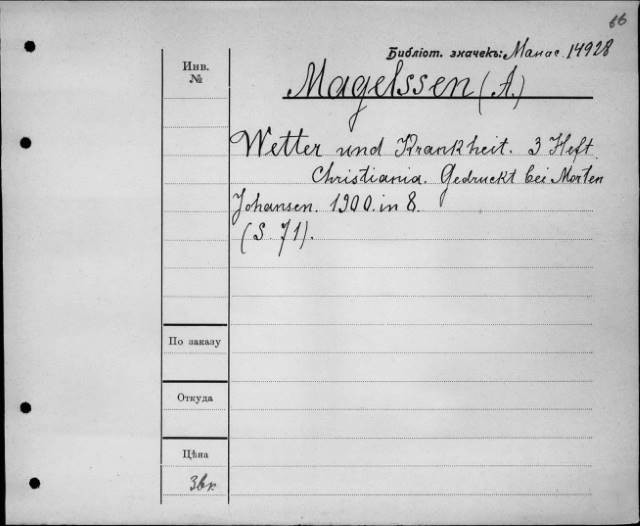 66
Библіот. значекъ: Манас. 14928
Инв.
№
Magelssen (A.)
Wetter und Krankheit. 3 Heft.
Christiania. Gedruckt bei Morten
Johansen. 1900. in 8.
(S. 71).
По заказу
Откуда
Цѣна